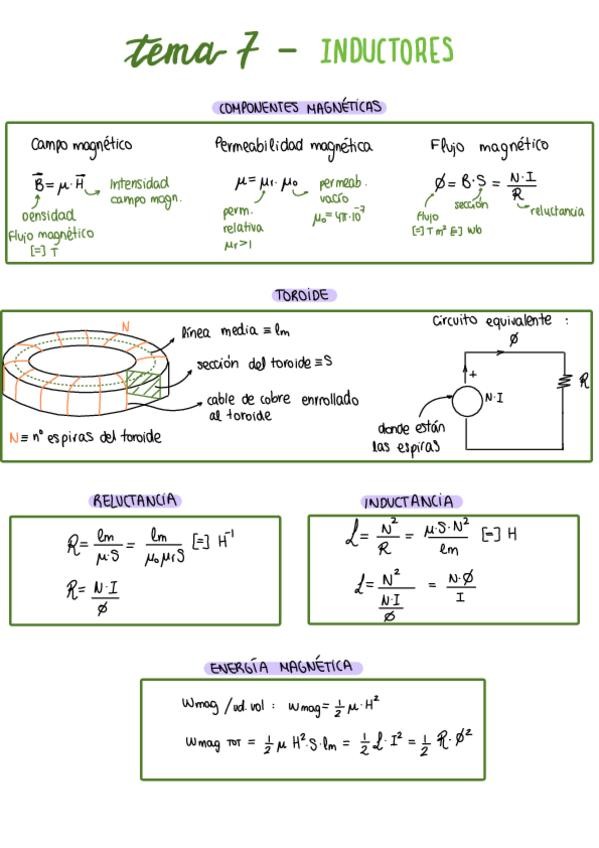 tema 7 - INDUCTORES
COMPONENTES MAGNÉTICAS
Campo magnético
B⃗ = μ · H⃗
Intensidad
campo magn.
Densidad
Flujo magnético
[=] T
Permeabilidad magnética
μ = μr · μ0
perm.
relativa
μr > 1
permeab.
vacío
μ0 = 4π·10^-7
Flujo magnético
Ø = B · S = N·I / R
sección
reluctancia
flujo
[=] T m² [=] Wb
TOROIDE
N
línea media ≡ lm
sección del toroide ≡ S
cable de cobre enrollado
al toroide
N ≡ nº espiras del toroide
Circuito equivalente :
Ø
+
N·I
R
donde están
las espiras
RELUCTANCIA
R = lm / μ·S = lm / μ0 μr S [=] H^-1
R = N·I / Ø
INDUCTANCIA
L = N² / R = μ·S·N² / lm [=] H
L = N² / (N·I / Ø) = N·Ø / I
ENERGÍA MAGNÉTICA
Wmag /ud.vol : wmag = 1/2 μ·H²
Wmag TOT = 1/2 μ H²·S·lm = 1/2 L·I² = 1/2 R·Ø²